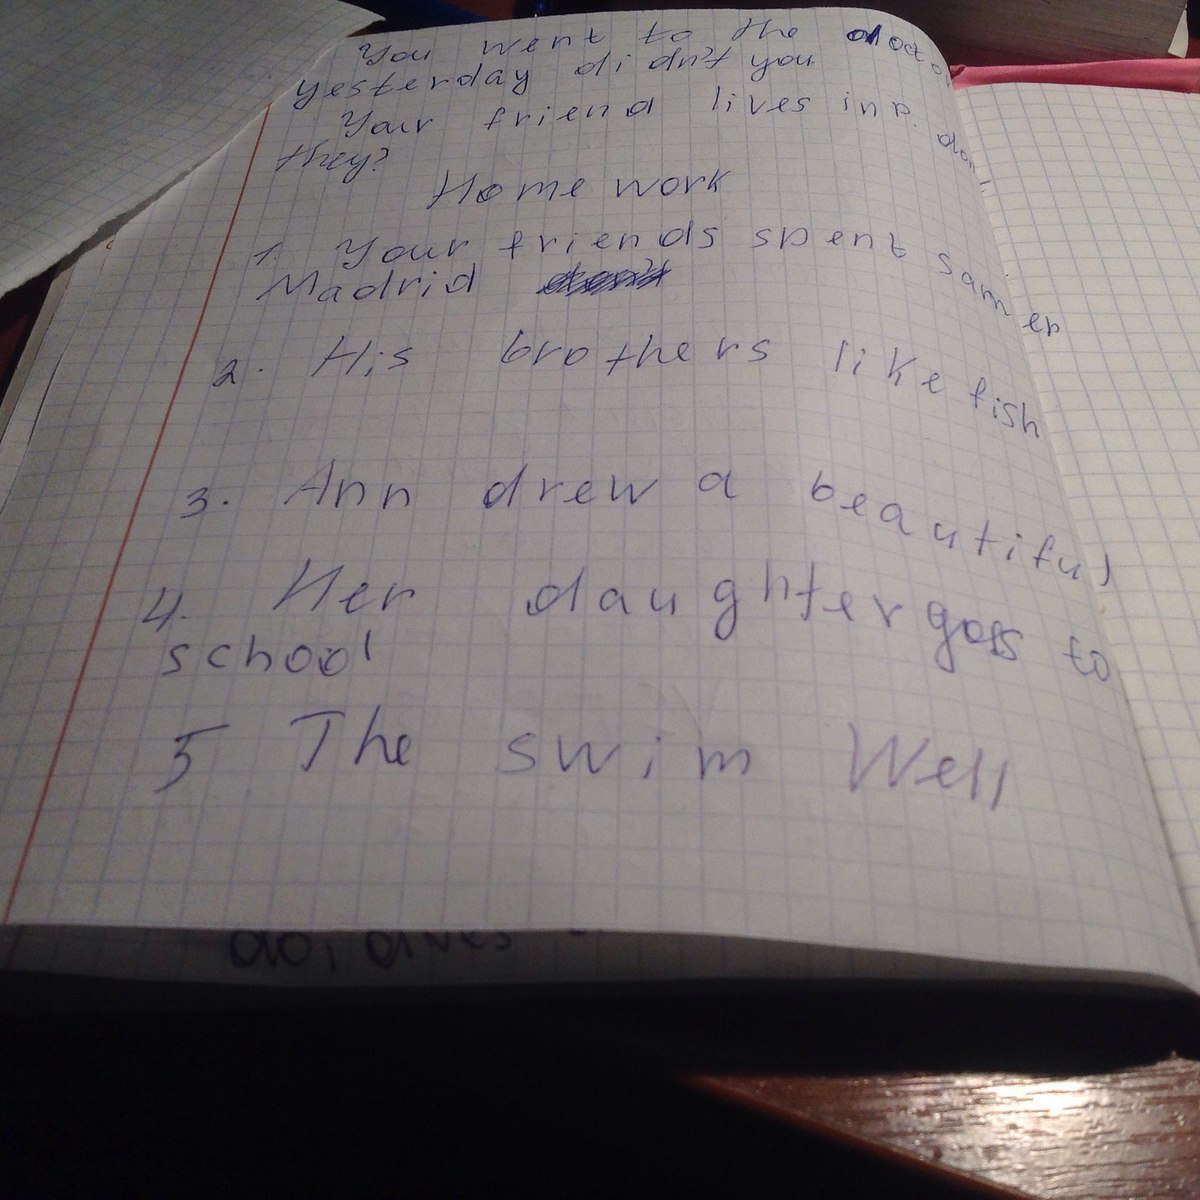 You went to the doctor
yesterday didn't you
Your friend lives in P. don't
they?
Home work
1. Your friends spent samer
Madrid
2. His brothers like fish
3. Ann drew a beautiful
4. Her daughter goes to
school
5 The swim Well